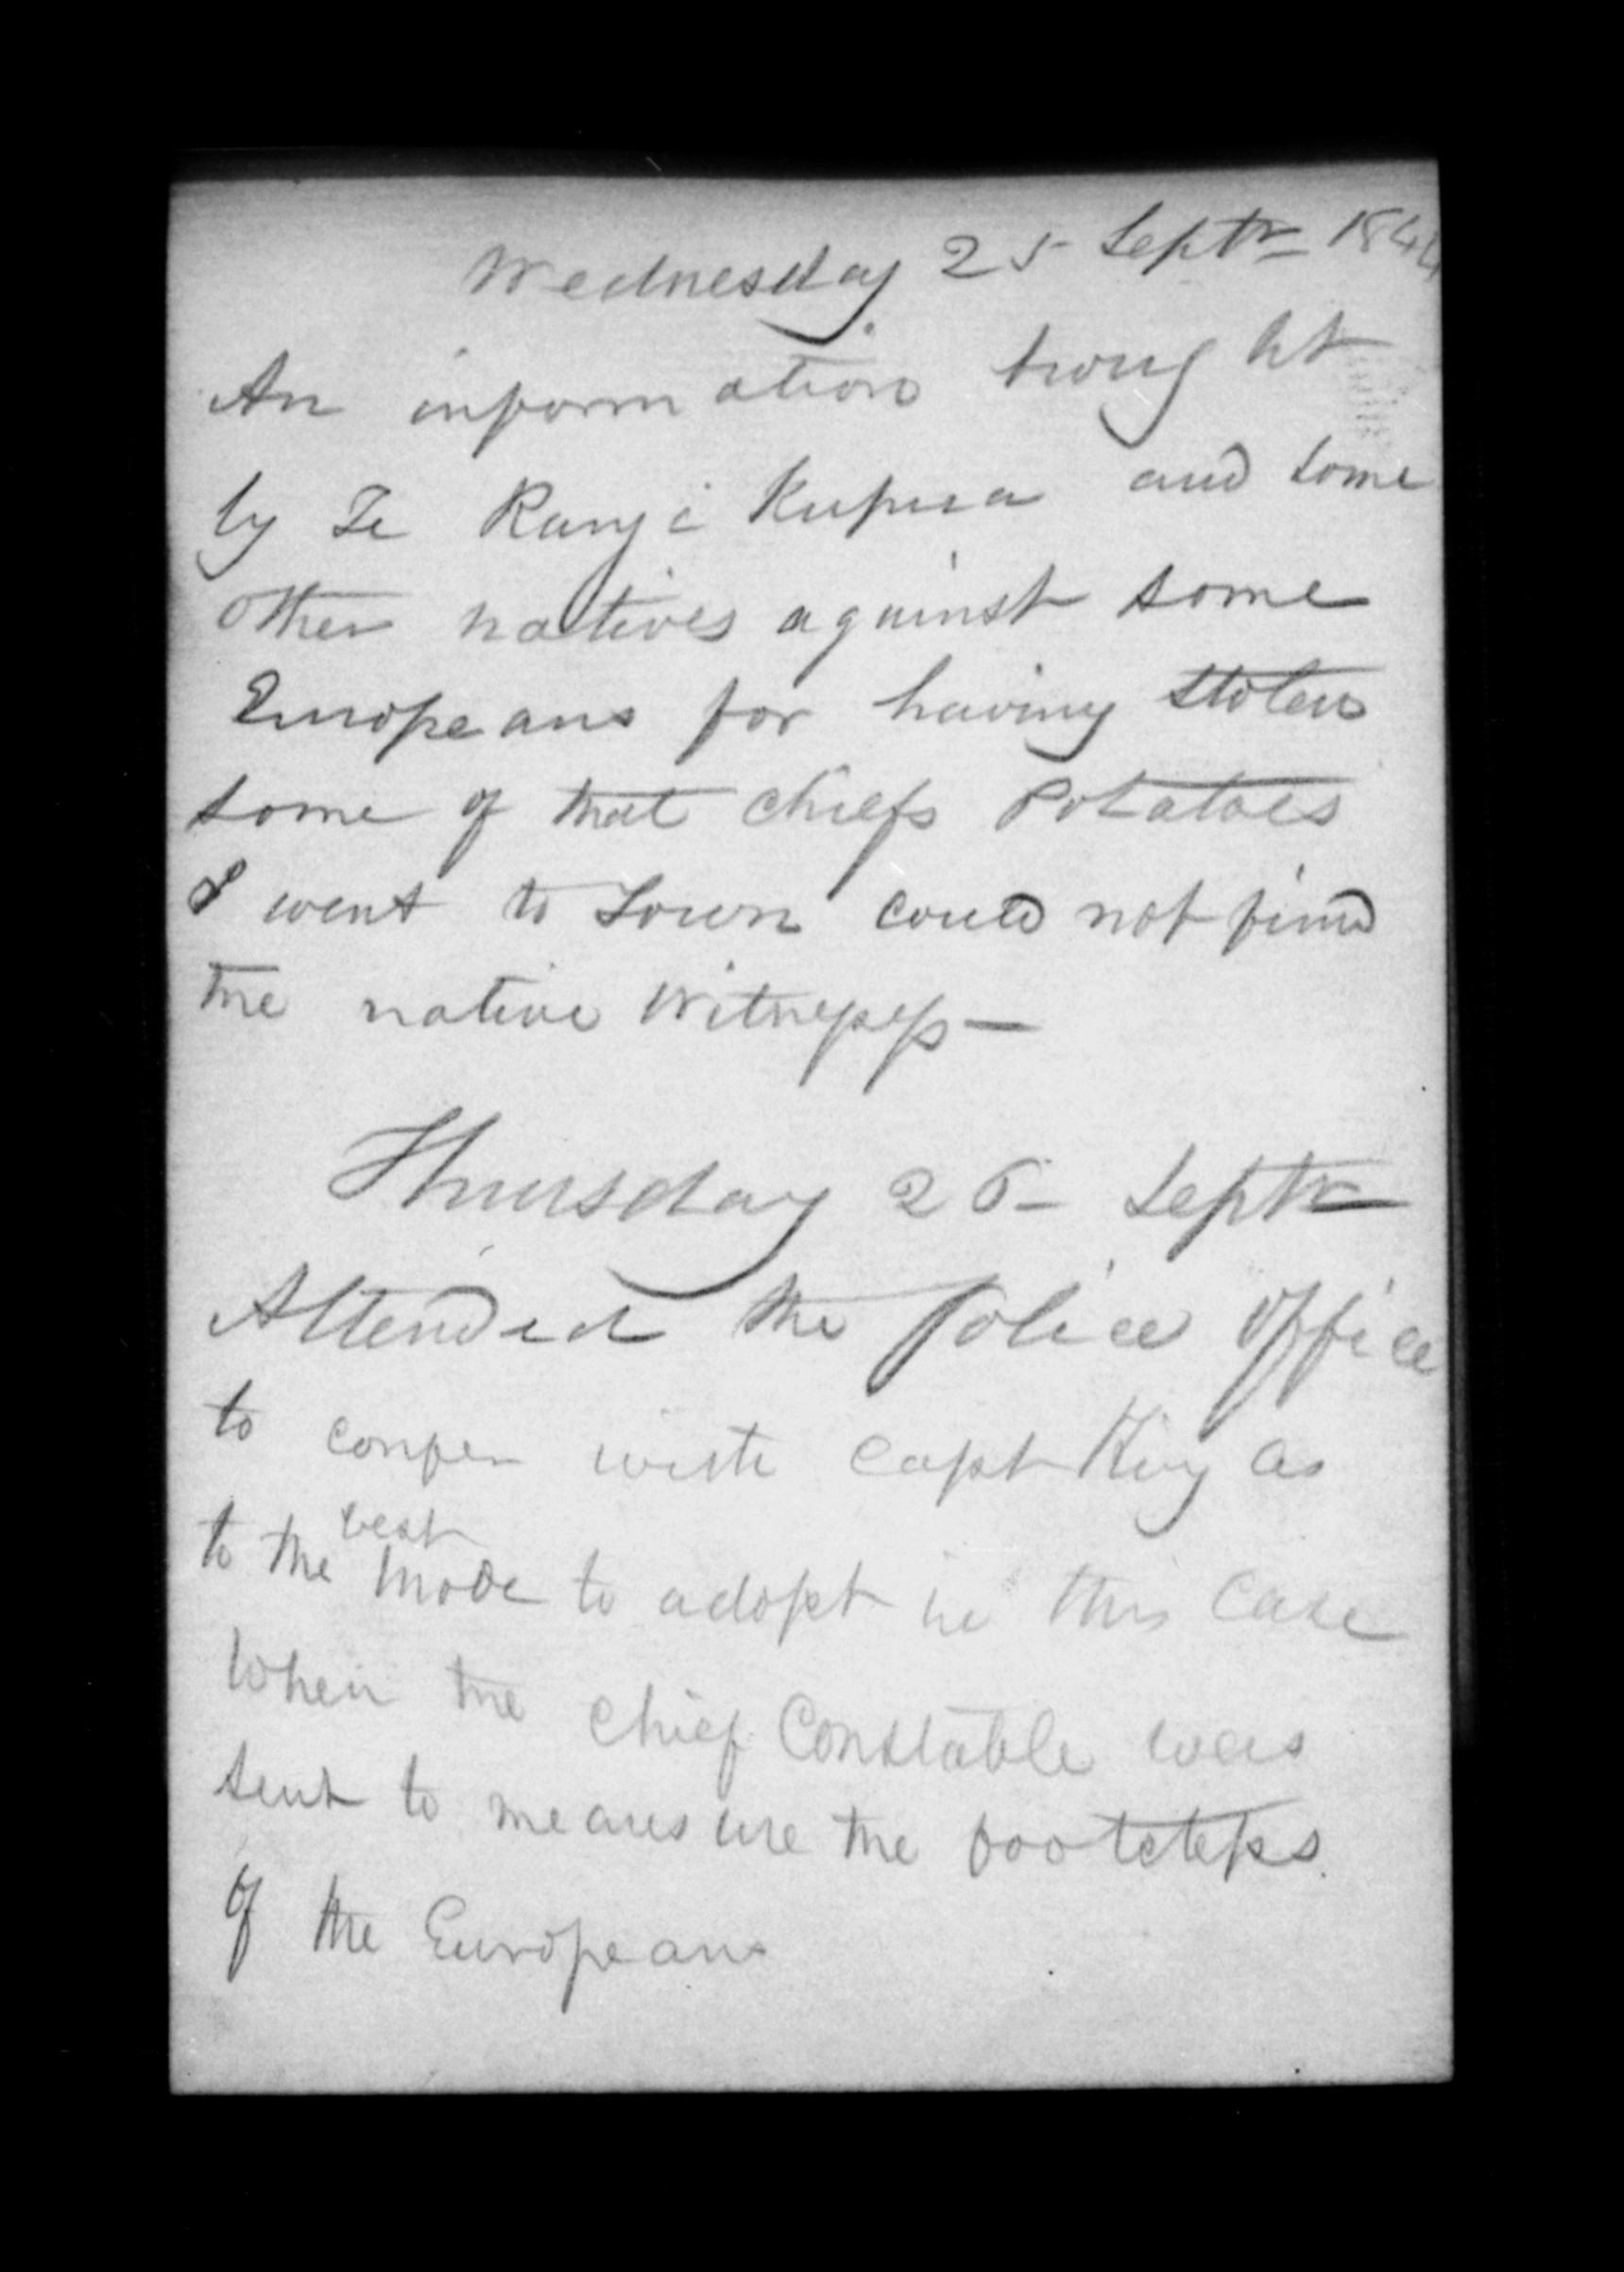 Wednesday 25 Septr 1844
An information brought
by Te Rangi Kupua and some
other natives against some
Europeans for having stolen
some of that chiefs Potatoes
I went to Town could not find
the native witnesses—
Thursday 26 - Septr
Attended the Police Office
to confer with Capt King as
best
to the mode to adopt in this Case
When the chief Constable was
sent to measure the footsteps
of the Europeans